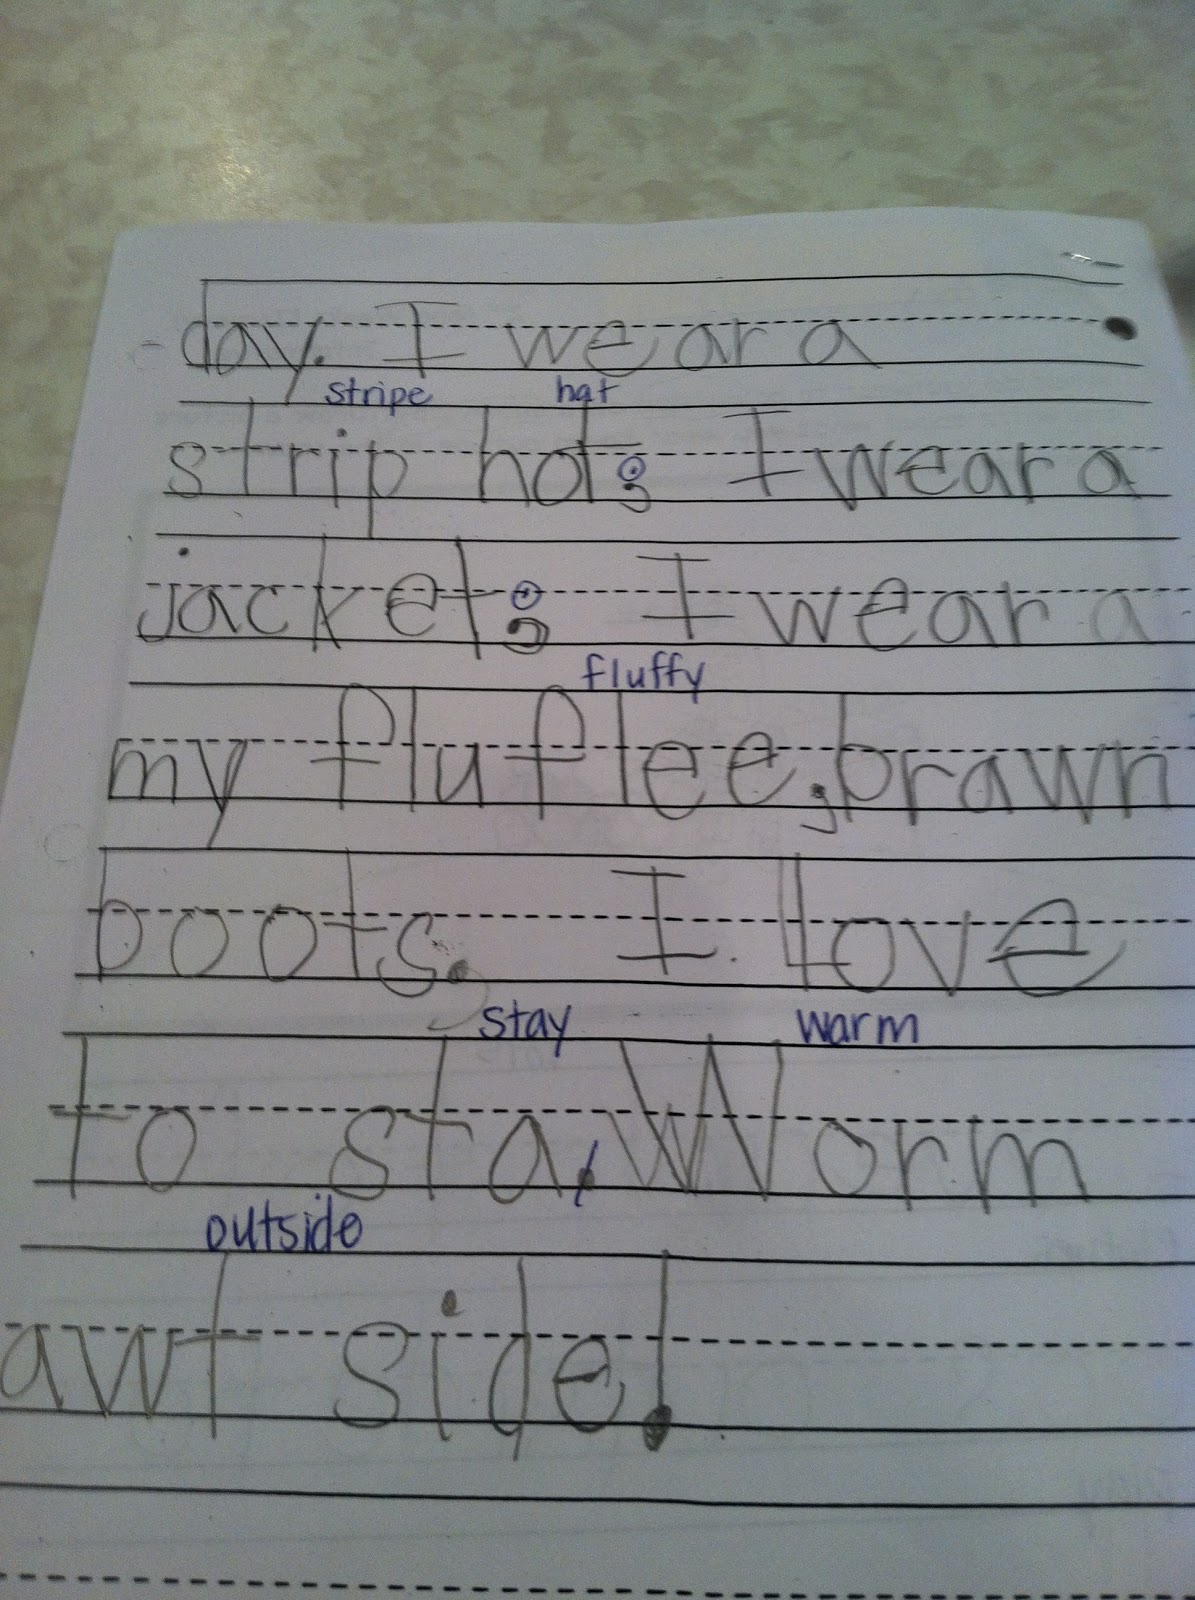 day. I wear a
stripe hat
strip hot; I wear a
jacket; I wear a
fluffy
my fluflee, brawn
boots. I love
stay warm
to sta, Worm
outside
awt side!